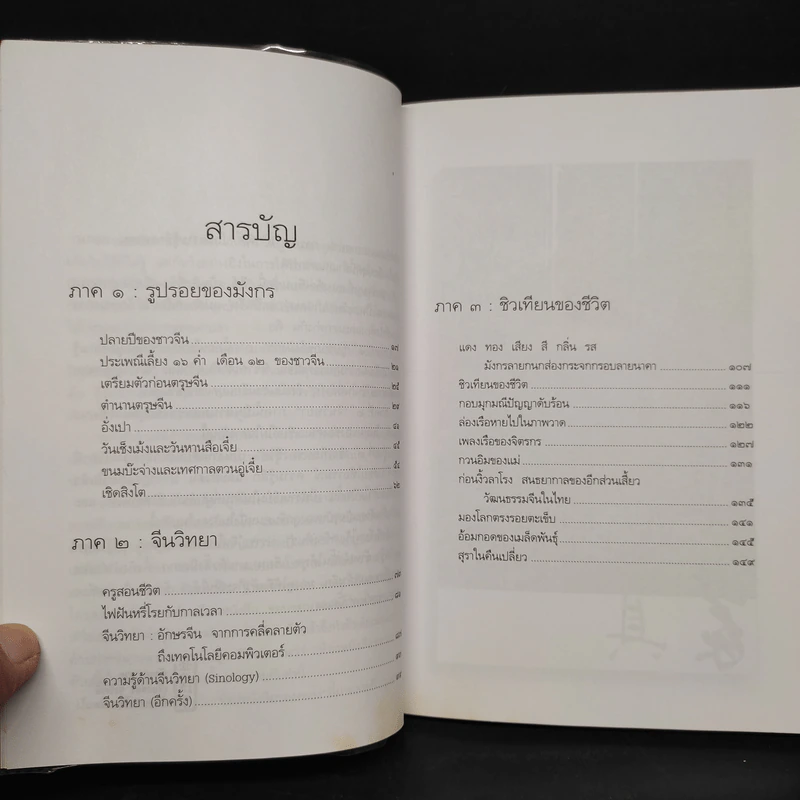 สารบัญ
ภาค ๑ : รูปรอยของมังกร
ปลายปีของชาวจีน ๑๗
ประเพณีเลี้ยง ๑๖ ค่ำ เดือน ๑๒ ของชาวจีน ๒๑
เตรียมตัวก่อนตรุษจีน ๒๕
ตำนานตรุษจีน
อั่งเปา
วันเช็งเม้งและวันหานสือเจี๋ย
ขนมบ๊ะจ่างและเทศกาลตวนอู่เจี๋ย
เชิดสิงโต
ภาค ๒ : จีนวิทยา
ครูสอนชีวิต
ไฟฝันหรี่โรยกับกาลเวลา
จีนวิทยา : อักษรจีน จากการคลี่คลายตัว
ถึงเทคโนโลยีคอมพิวเตอร์
ความรู้ด้านจีนวิทยา (Sinology)
จีนวิทยา (อีกครั้ง)
ภาค ๓ : ชิวเทียนของชีวิต
แดง ทอง เสียง สี กลิ่น รส
มังกรลายกนกส่องกระจกกรอบลายนาคา ๑๐๗
ชิวเทียนของชีวิต ๑๑๑
กอบมุกมณีปัญญาดับร้อน ๑๑๖
ล่องเรือหายไปในภาพวาด ๑๒๒
เพลงเรือของจิตรกร ๑๒๗
กวนอิมของแม่ ๑๓๑
ก่อนงิ้วลาโรง สนธยากาลของอีกส่วนเสี้ยว
วัฒนธรรมจีนในไทย ๑๓๕
มองโลกตรงรอยตะเข็บ ๑๔๑
อ้อมกอดของเมล็ดพันธุ์ ๑๔๕
สุราในคืนเปลี่ยว ๑๔๙